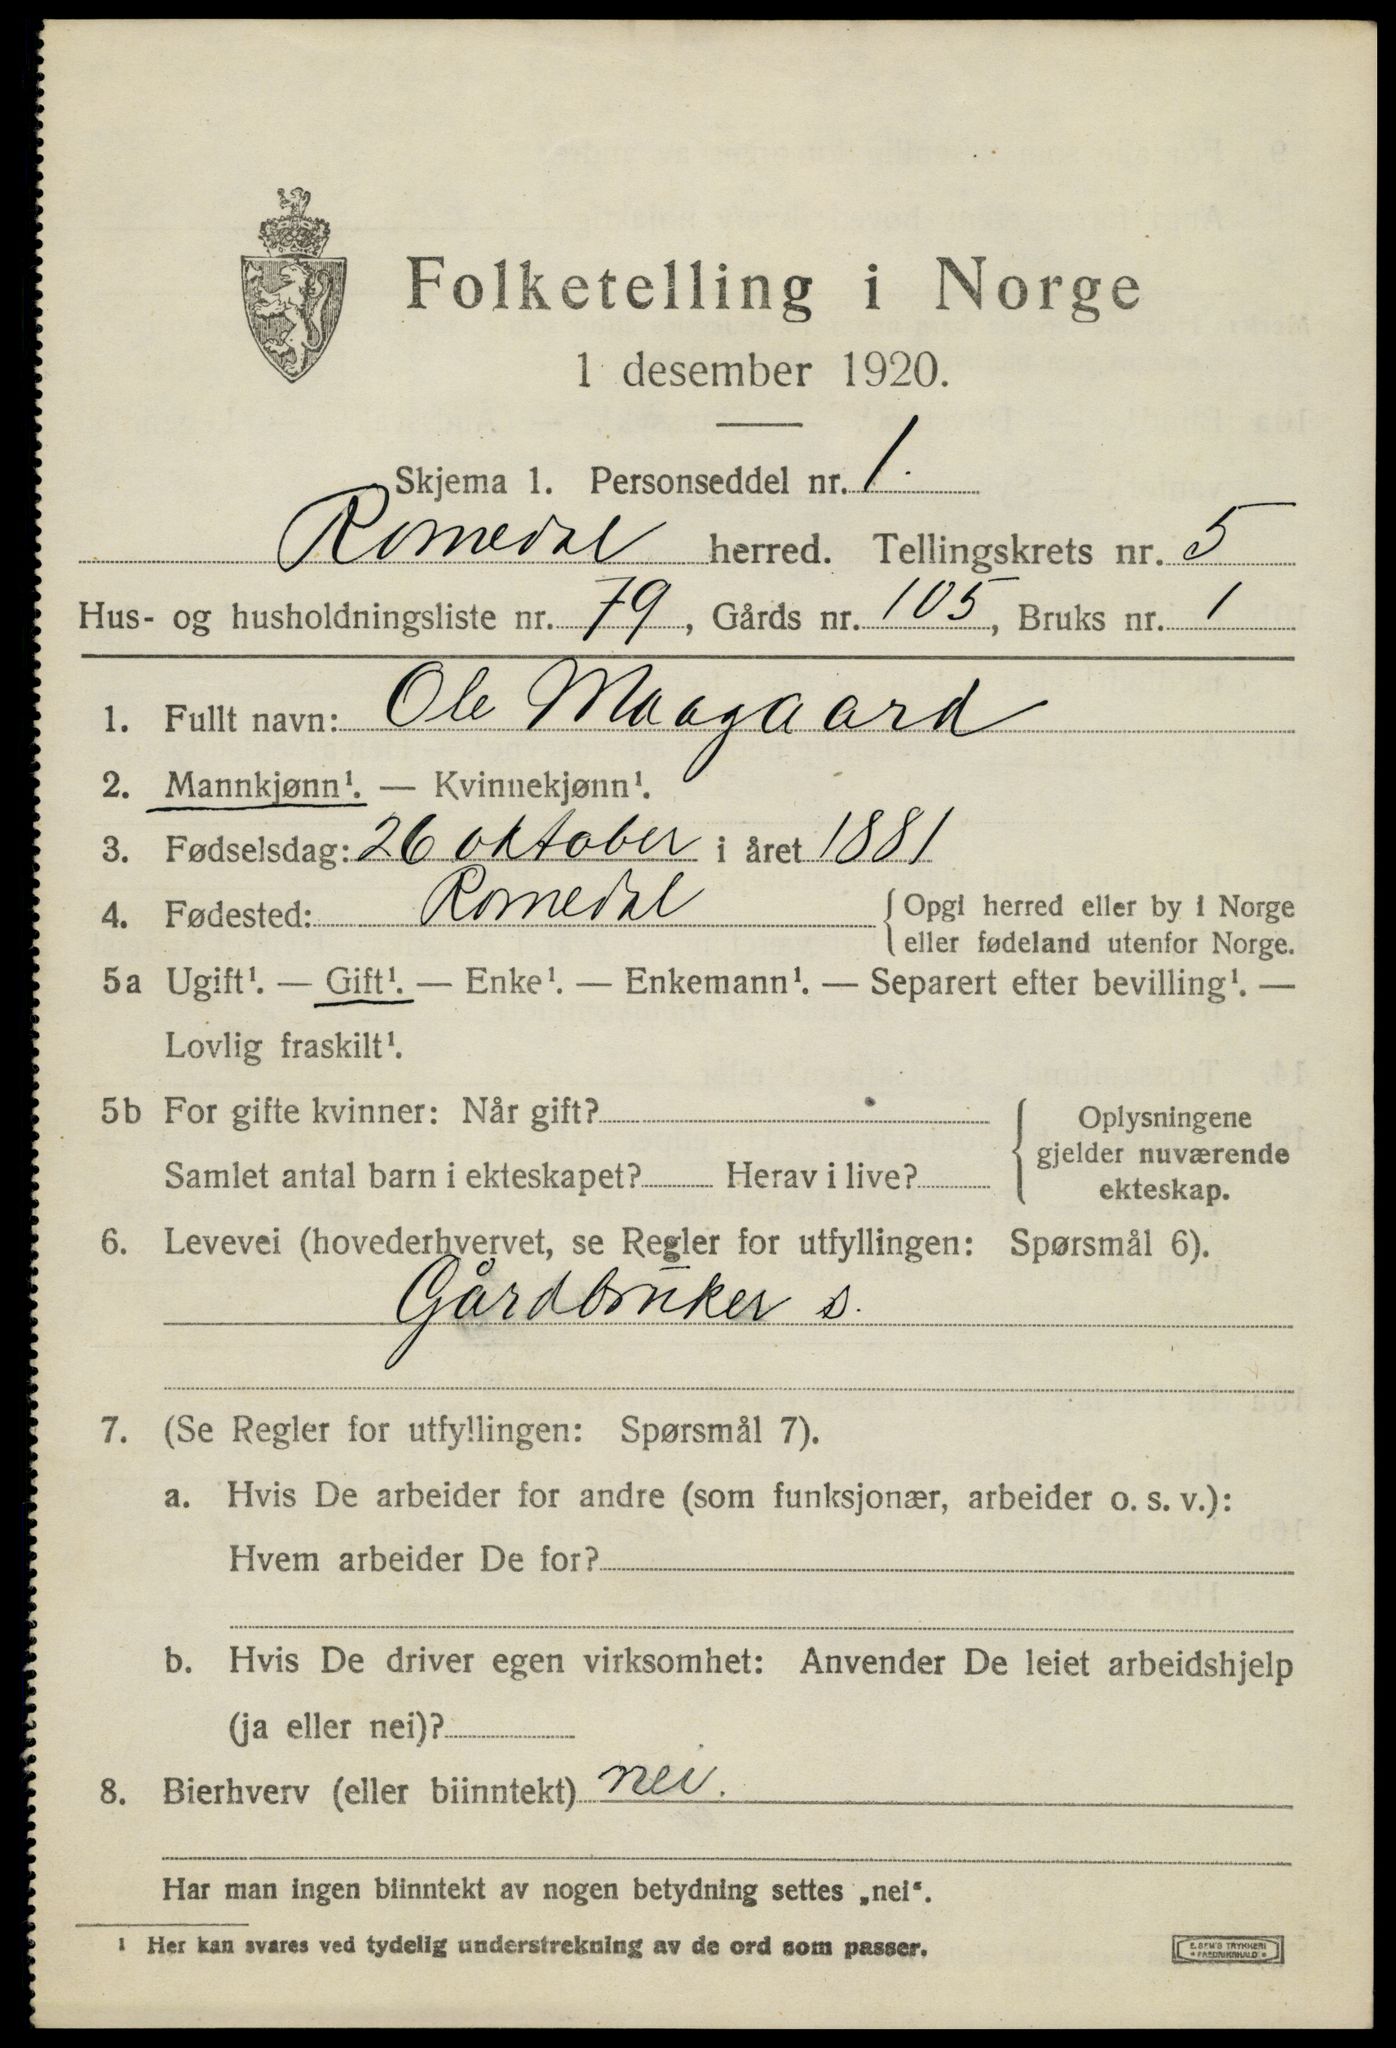 Folketelling i Norge
1 desember 1920.
Skjema 1. Personseddel nr. 1.
Romedal herred. Tellingskrets nr. 5
Hus- og husholdningsliste nr. 79, Gårds nr. 105, Bruks nr. 1
1. Fullt navn: Ole Maagaard
2. Mannkjønn¹. — Kvinnekjønn¹.
3. Fødselsdag: 26 oktober i året 1881
4. Fødested: Romedal { Opgi herred eller by i Norge
eller fødeland utenfor Norge.
5a Ugift¹. — Gift¹. — Enke¹. — Enkemann¹. — Separert efter bevilling¹. —
Lovlig fraskilt¹.
5b For gifte kvinner: Når gift?
Samlet antal barn i ekteskapet? Herav i live?
Oplysningene
gjelder nuværende
ekteskap.
6. Levevei (hovederhvervet, se Regler for utfyllingen: Spørsmål 6).
Gårdbruker s.
7. (Se Regler for utfyllingen: Spørsmål 7).
a. Hvis De arbeider for andre (som funksjonær, arbeider o. s. v.):
Hvem arbeider De for?
b. Hvis De driver egen virksomhet: Anvender De leiet arbeidshjelp
(ja eller nei)?
8. Bierhverv (eller biinntekt) nei.
Har man ingen biinntekt av nogen betydning settes „nei“.
¹ Her kan svares ved tydelig understrekning av de ord som passer.
E. SEM'S TRYKKERI
* FREDRIKSHALD *